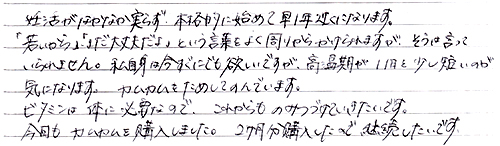 妊活がなかなか実らず 本格的に始めて早1年近くになります。
「若いから」「まだ大丈夫だよ」という言葉をよく周りからかけられますが、そうは言って
いられません。私自身は今すぐにでも欲しいですが、高温期が11日と少し短いのが
気になります。カムカムをためしてのんでいます。
ビタミンは体に必要なので、これからものみつづけていきたいです。
今回もカムカムを購入しました。2ヶ月分購入したので継続したいです。